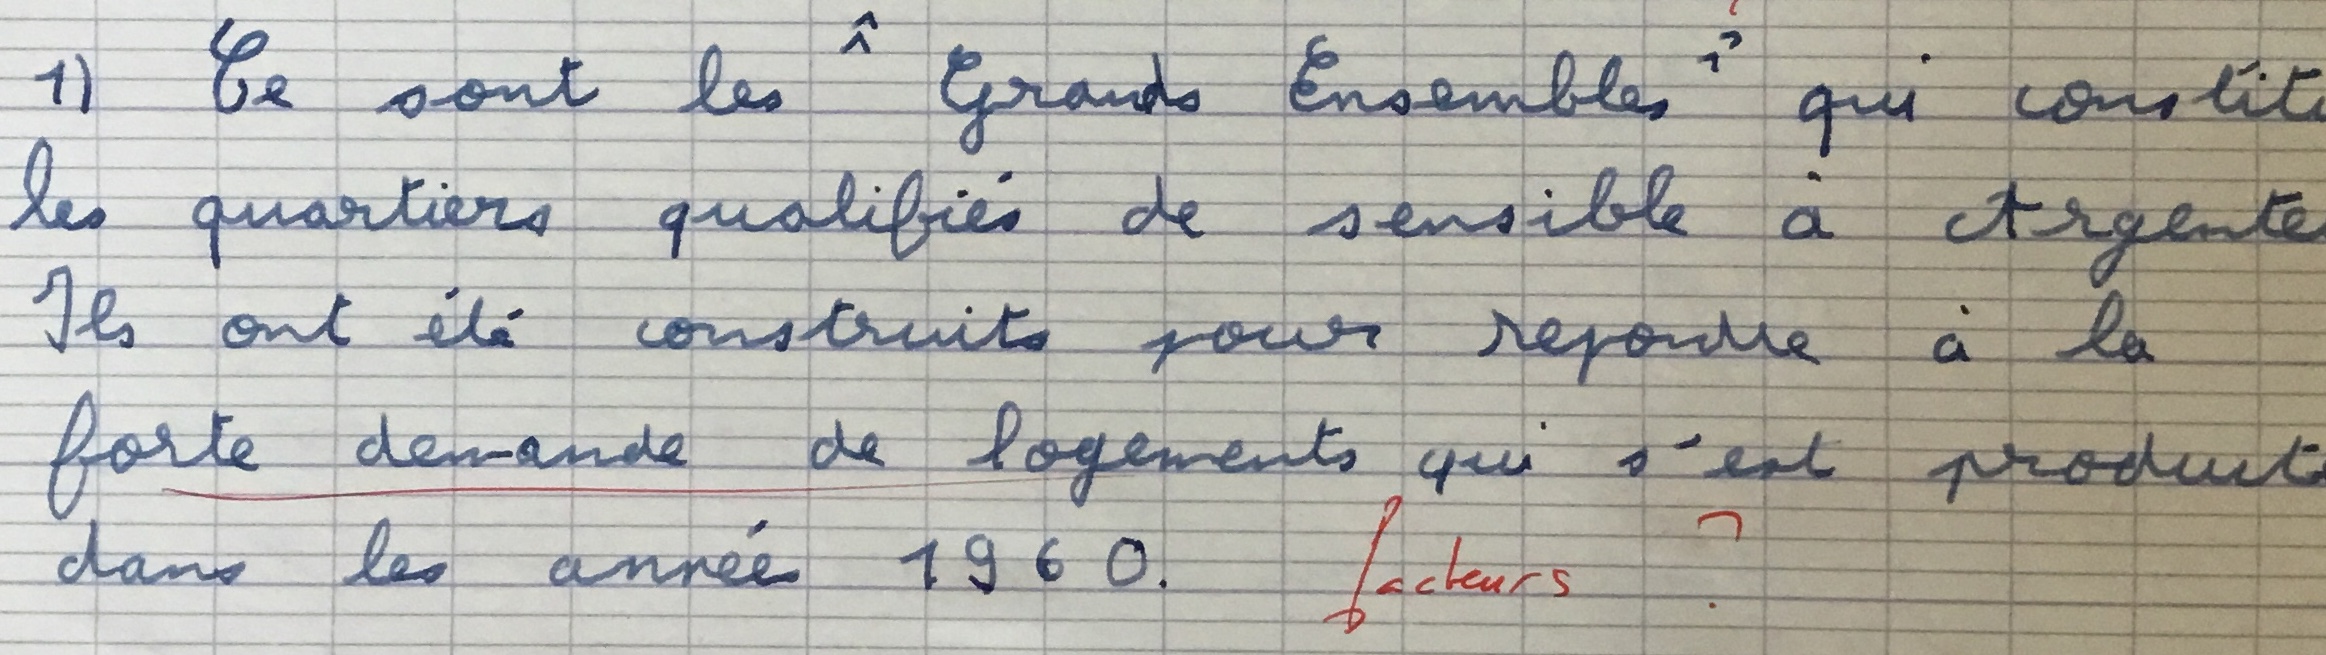 1) Ce sont les " Grands Ensembles " qui constitu
les quartiers qualifiés de sensible à Argenteu
Ils ont été construits pour repondre à la
forte demande de logements qui s'est produit
dans les années 1960. facteurs ?